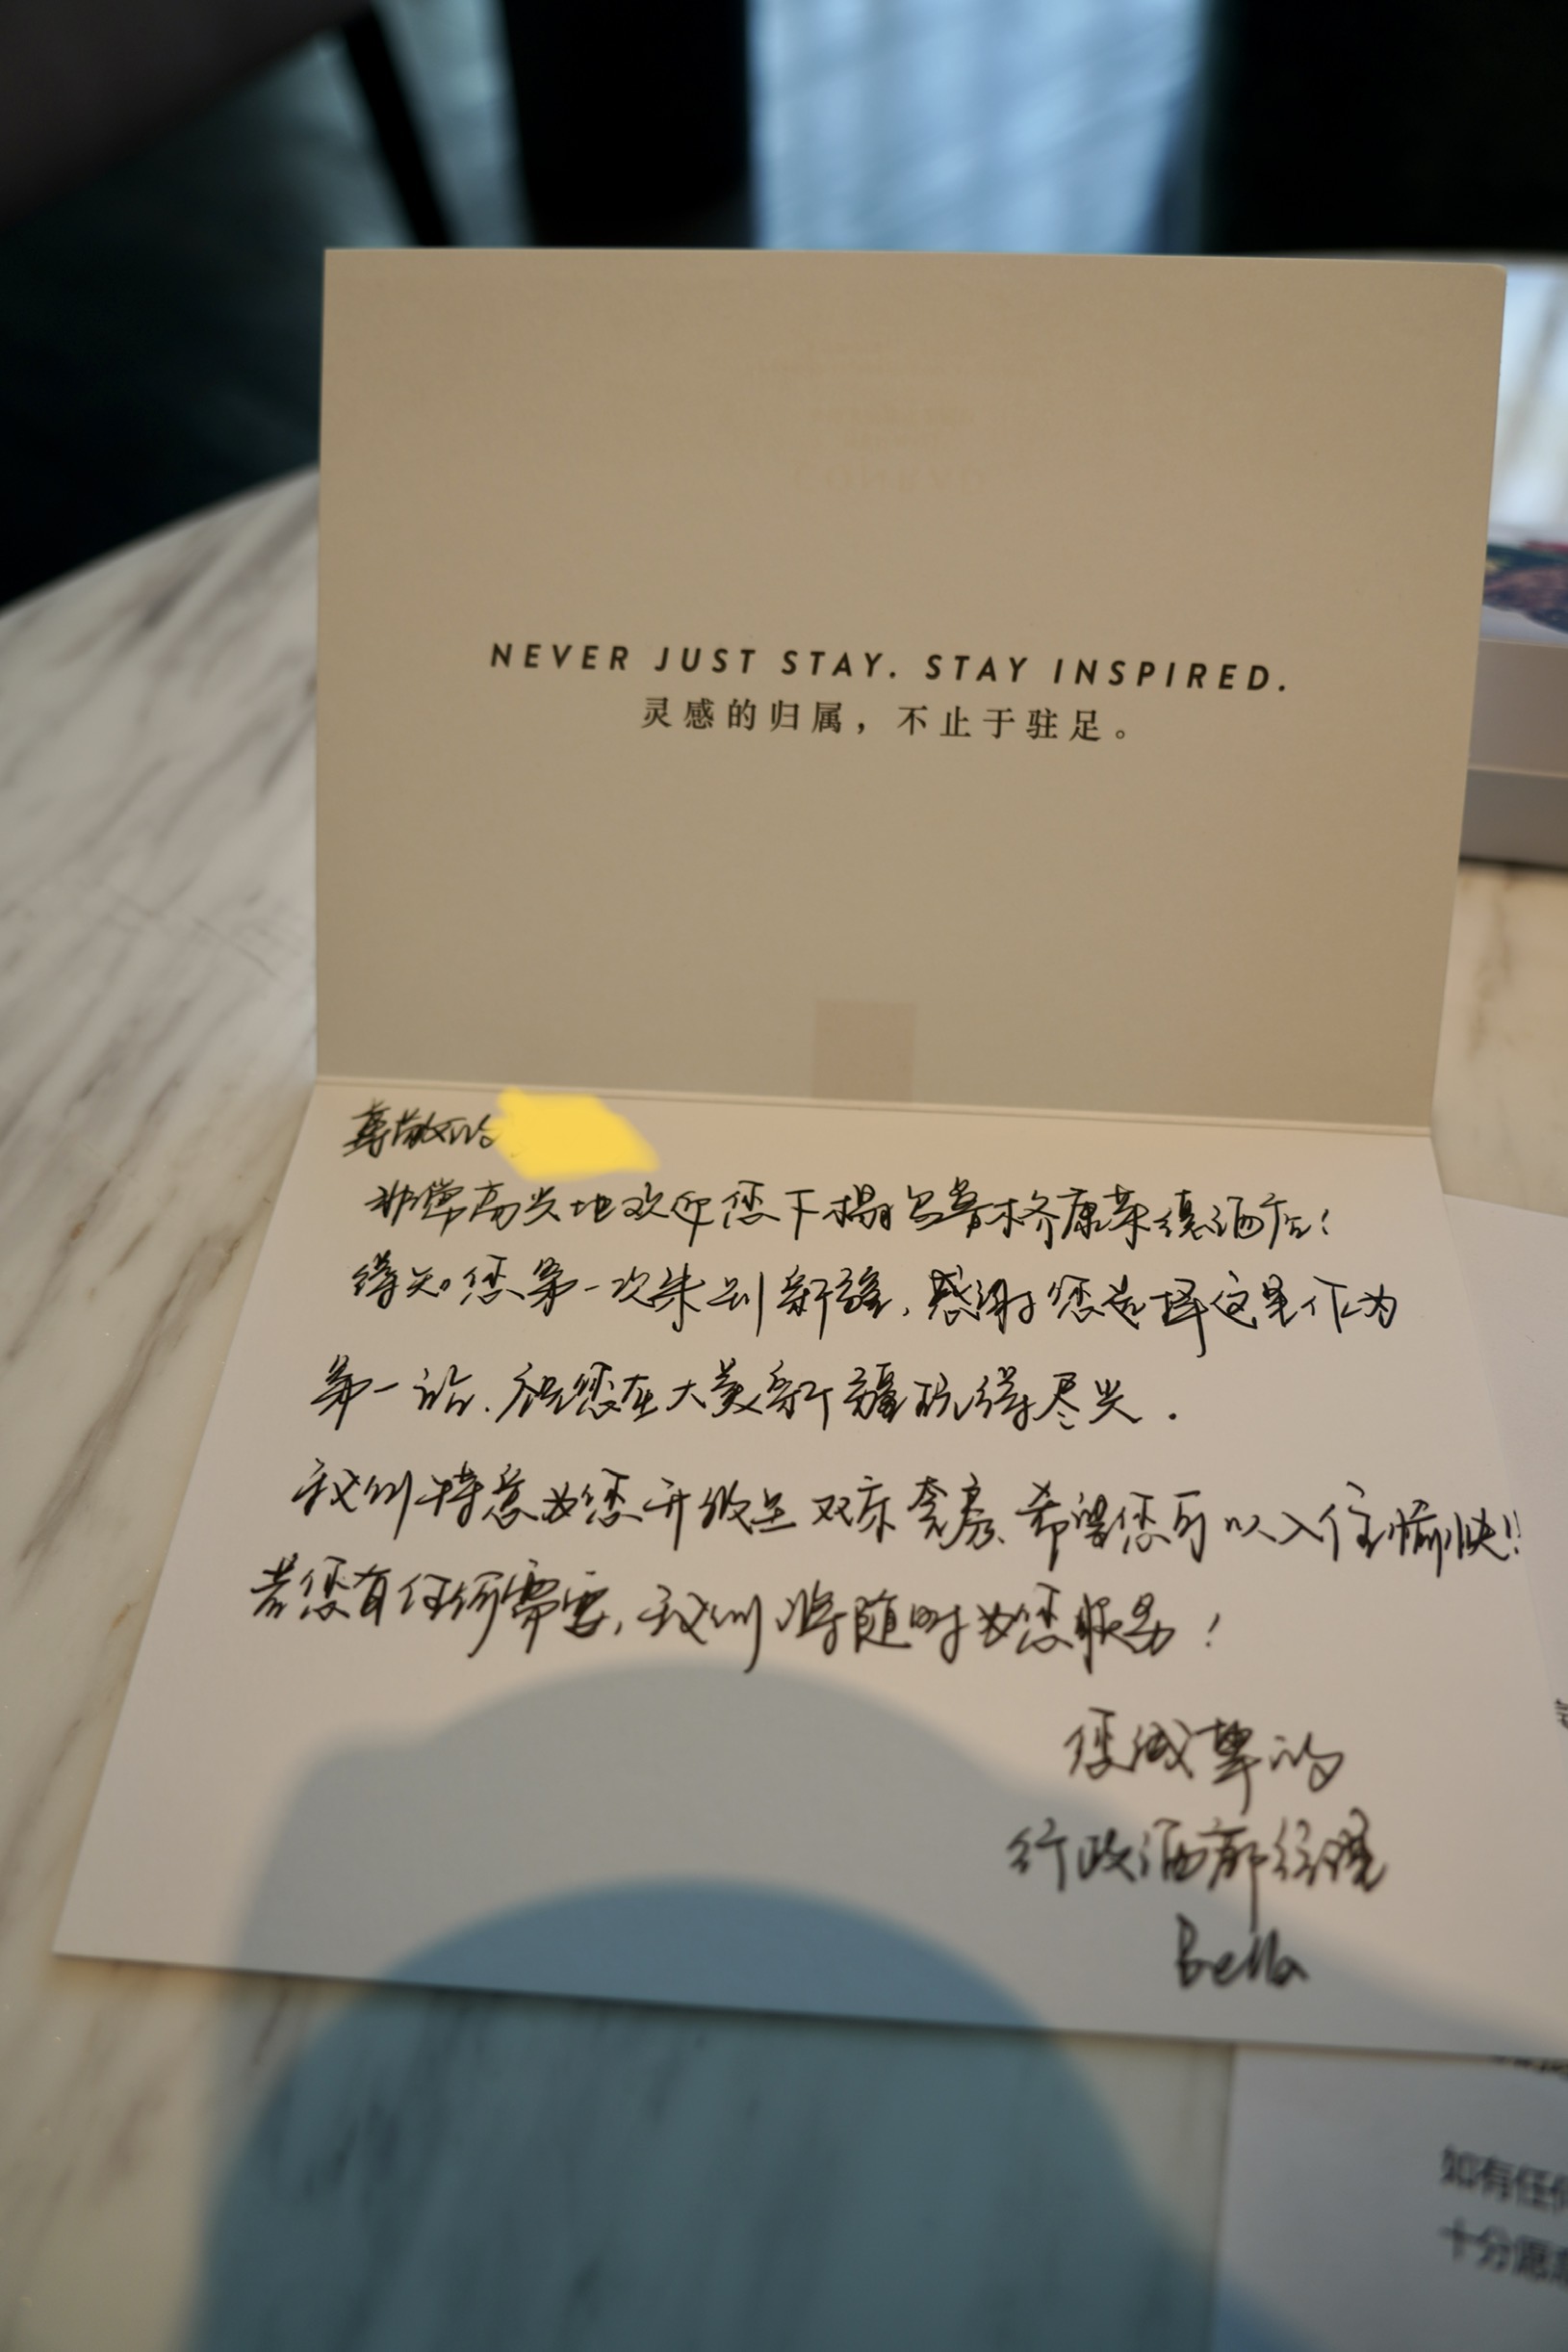 NEVER JUST STAY. STAY INSPIRED.
灵感的归属，不止于驻足。
尊敬的
非常高兴地欢迎您下榻乌鲁木齐康莱德酒店！
得知您第一次来到新疆，感谢您选择这里作为
第一站，祝您在大美新疆玩得尽兴．
我们特意为您升级至双床套房，希望您可以入住愉快!!
若您有任何需要，我们将随时为您服务！
您诚挚的
行政酒廊经理
Bella
如有任
十分愿